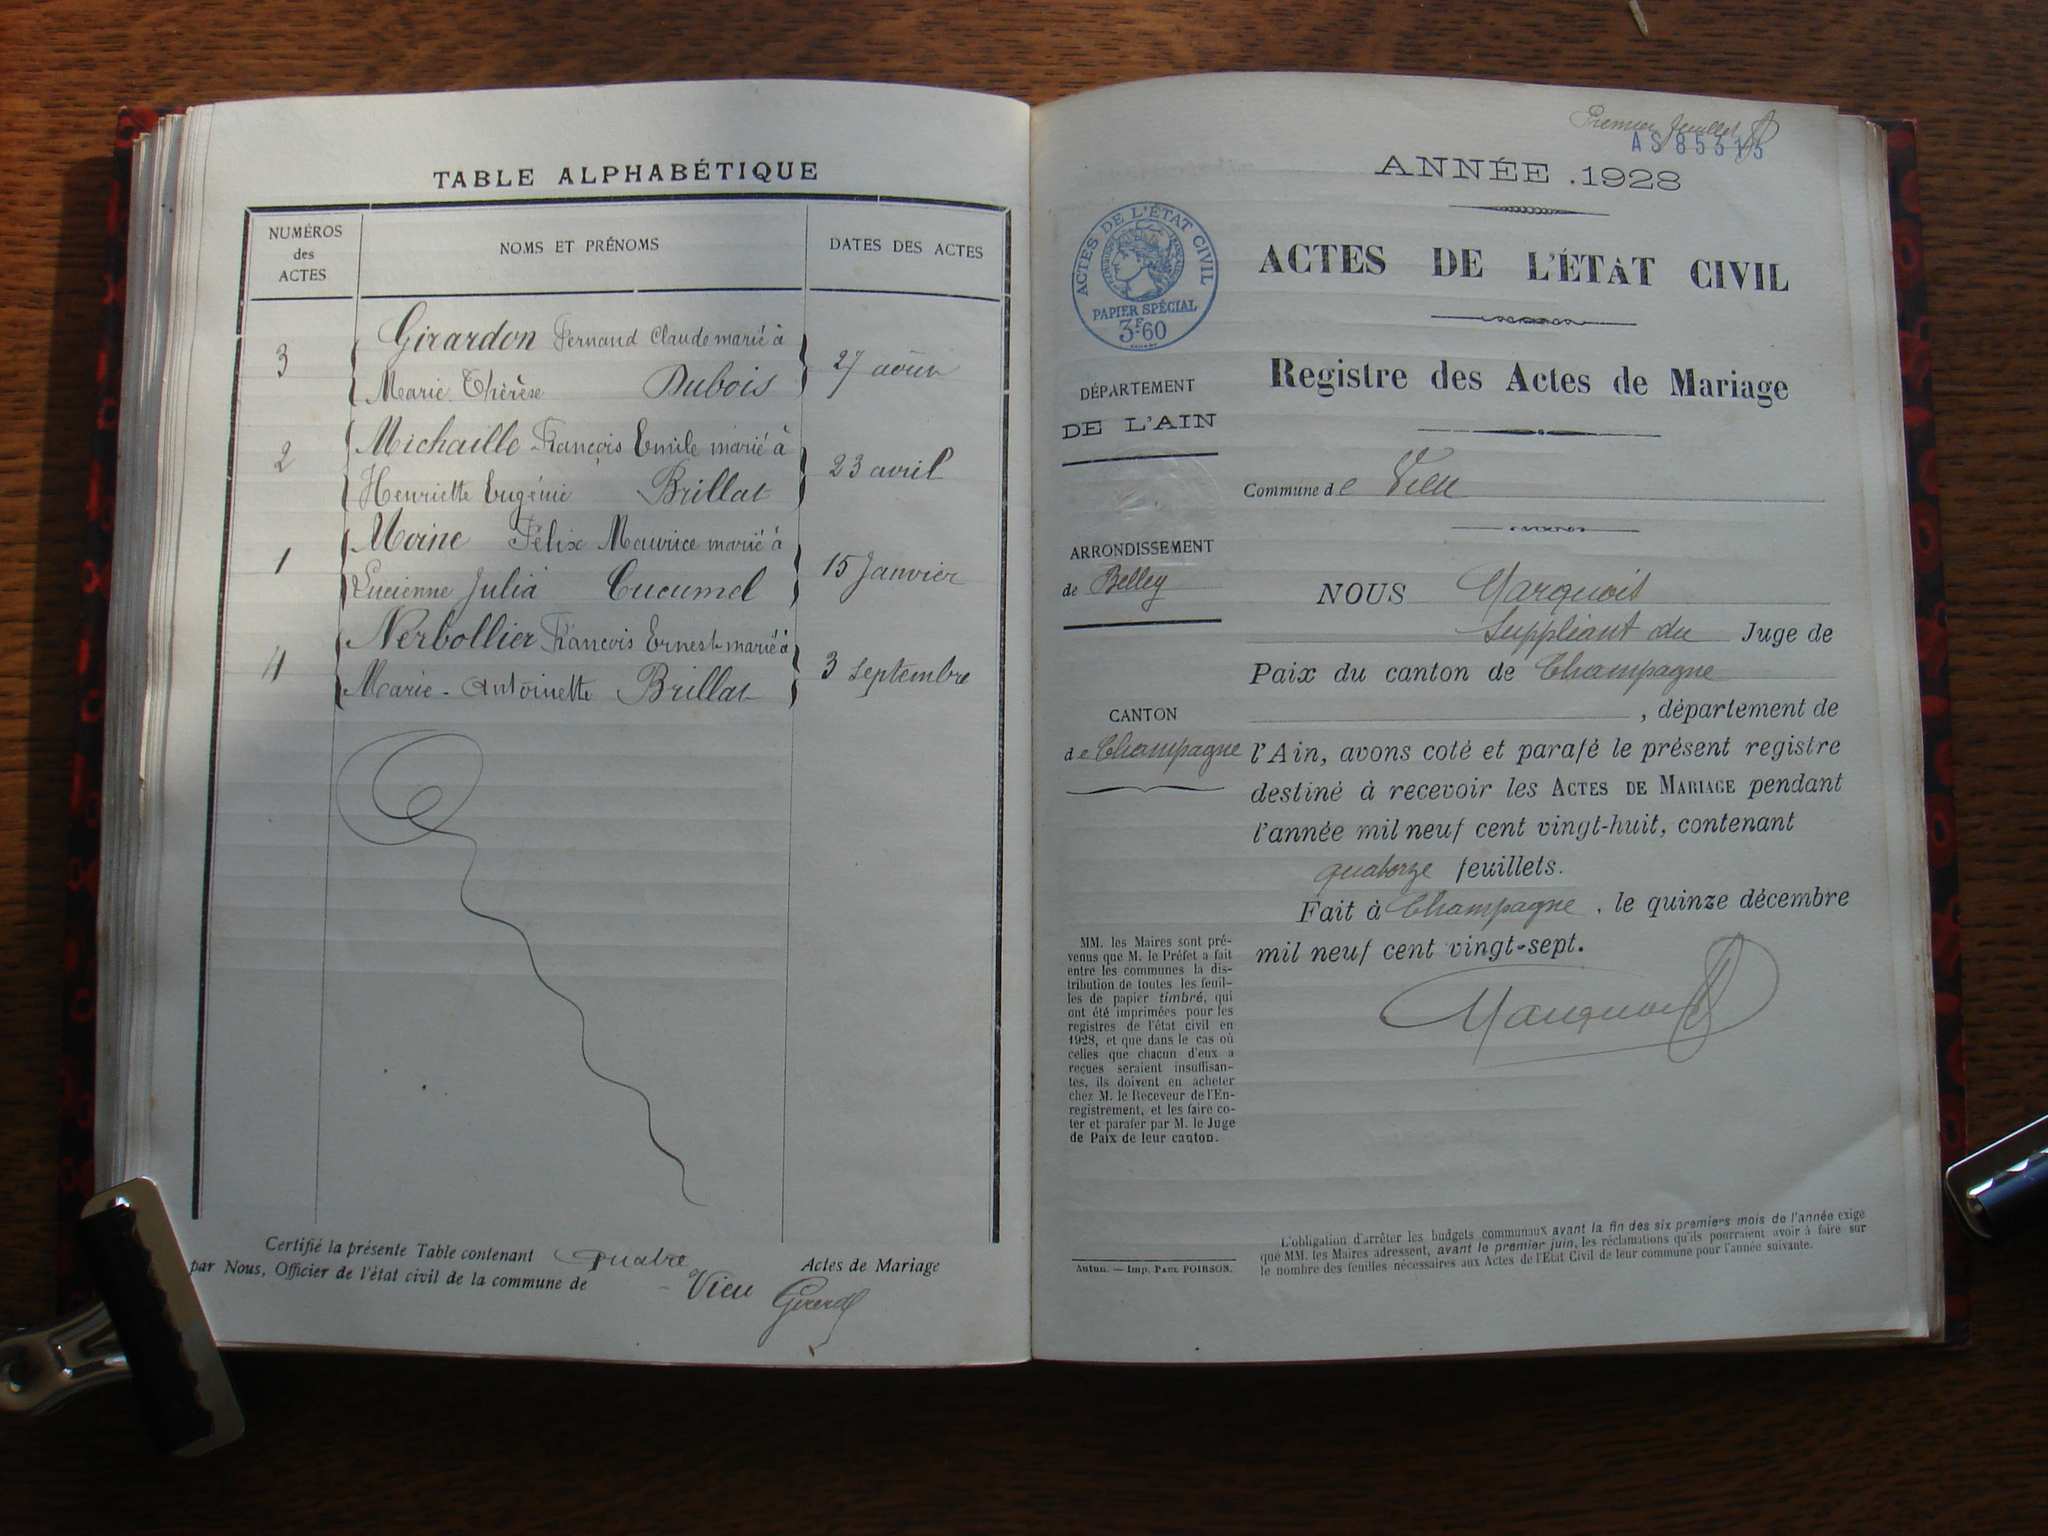 TABLE ALPHABÉTIQUE
NUMÉROS
des
ACTES
NOMS ET PRÉNOMS
DATES DES ACTES
Girardon Fernand Claude marié à
3
27 août
Marie Thérèse Dubois
Michaille François Emile marié à
2
23 avril
Henriette Eugénie Brillat
Moine Félix Maurice marié à
1
15 Janvier
Lucienne Julia Cucumel
Nerbollier François Ernest marié à
4
3 septembre
Marie-Antoinette Brillat
Certifié la présente Table contenant quatre Actes de Mariage
par Nous, Officier de l'état civil de la commune de Vieu
Premier feuillet
AS 85313
ANNÉE 1928
ACTES DE L'ÉTAT CIVIL
PAPIER SPÉCIAL
3F60
ACTES DE L'ÉTAT CIVIL
Registre des Actes de Mariage
DÉPARTEMENT
DE L'AIN
Commune de Vieu
ARRONDISSEMENT
de Belley
NOUS Marquois
Suppléant du Juge de
Paix du canton de Champagne
, département de
CANTON
de Champagne
l'Ain, avons coté et parafé le présent registre
destiné à recevoir les ACTES DE MARIAGE pendant
l'année mil neuf cent vingt-huit, contenant
quatorze feuillets.
Fait à Champagne, le quinze décembre
mil neuf cent vingt-sept.
MM. les Maires sont pré-
venus que M. le Préfet a fait
entre les communes la dis-
tribution de toutes les feuil-
les de papier timbré, qui
ont été imprimées pour les
registres de l'état civil en
1928, et que dans le cas où
celles que chacun d'eux a
reçues seraient insuffisan-
tes, ils doivent en acheter
chez M. le Receveur de l'En-
registrement, et les faire co-
ter et parafer par M. le Juge
de Paix de leur canton.
Autun. — Imp. PAUL POIRSON.
L'obligation d'arrêter les budgets communaux avant la fin des six premiers mois de l'année exige
que MM. les Maires adressent, avant le premier juin, les réclamations qu'ils pourraient avoir à faire sur
le nombre des feuilles nécessaires aux Actes de l'Etat Civil de leur commune pour l'année suivante.